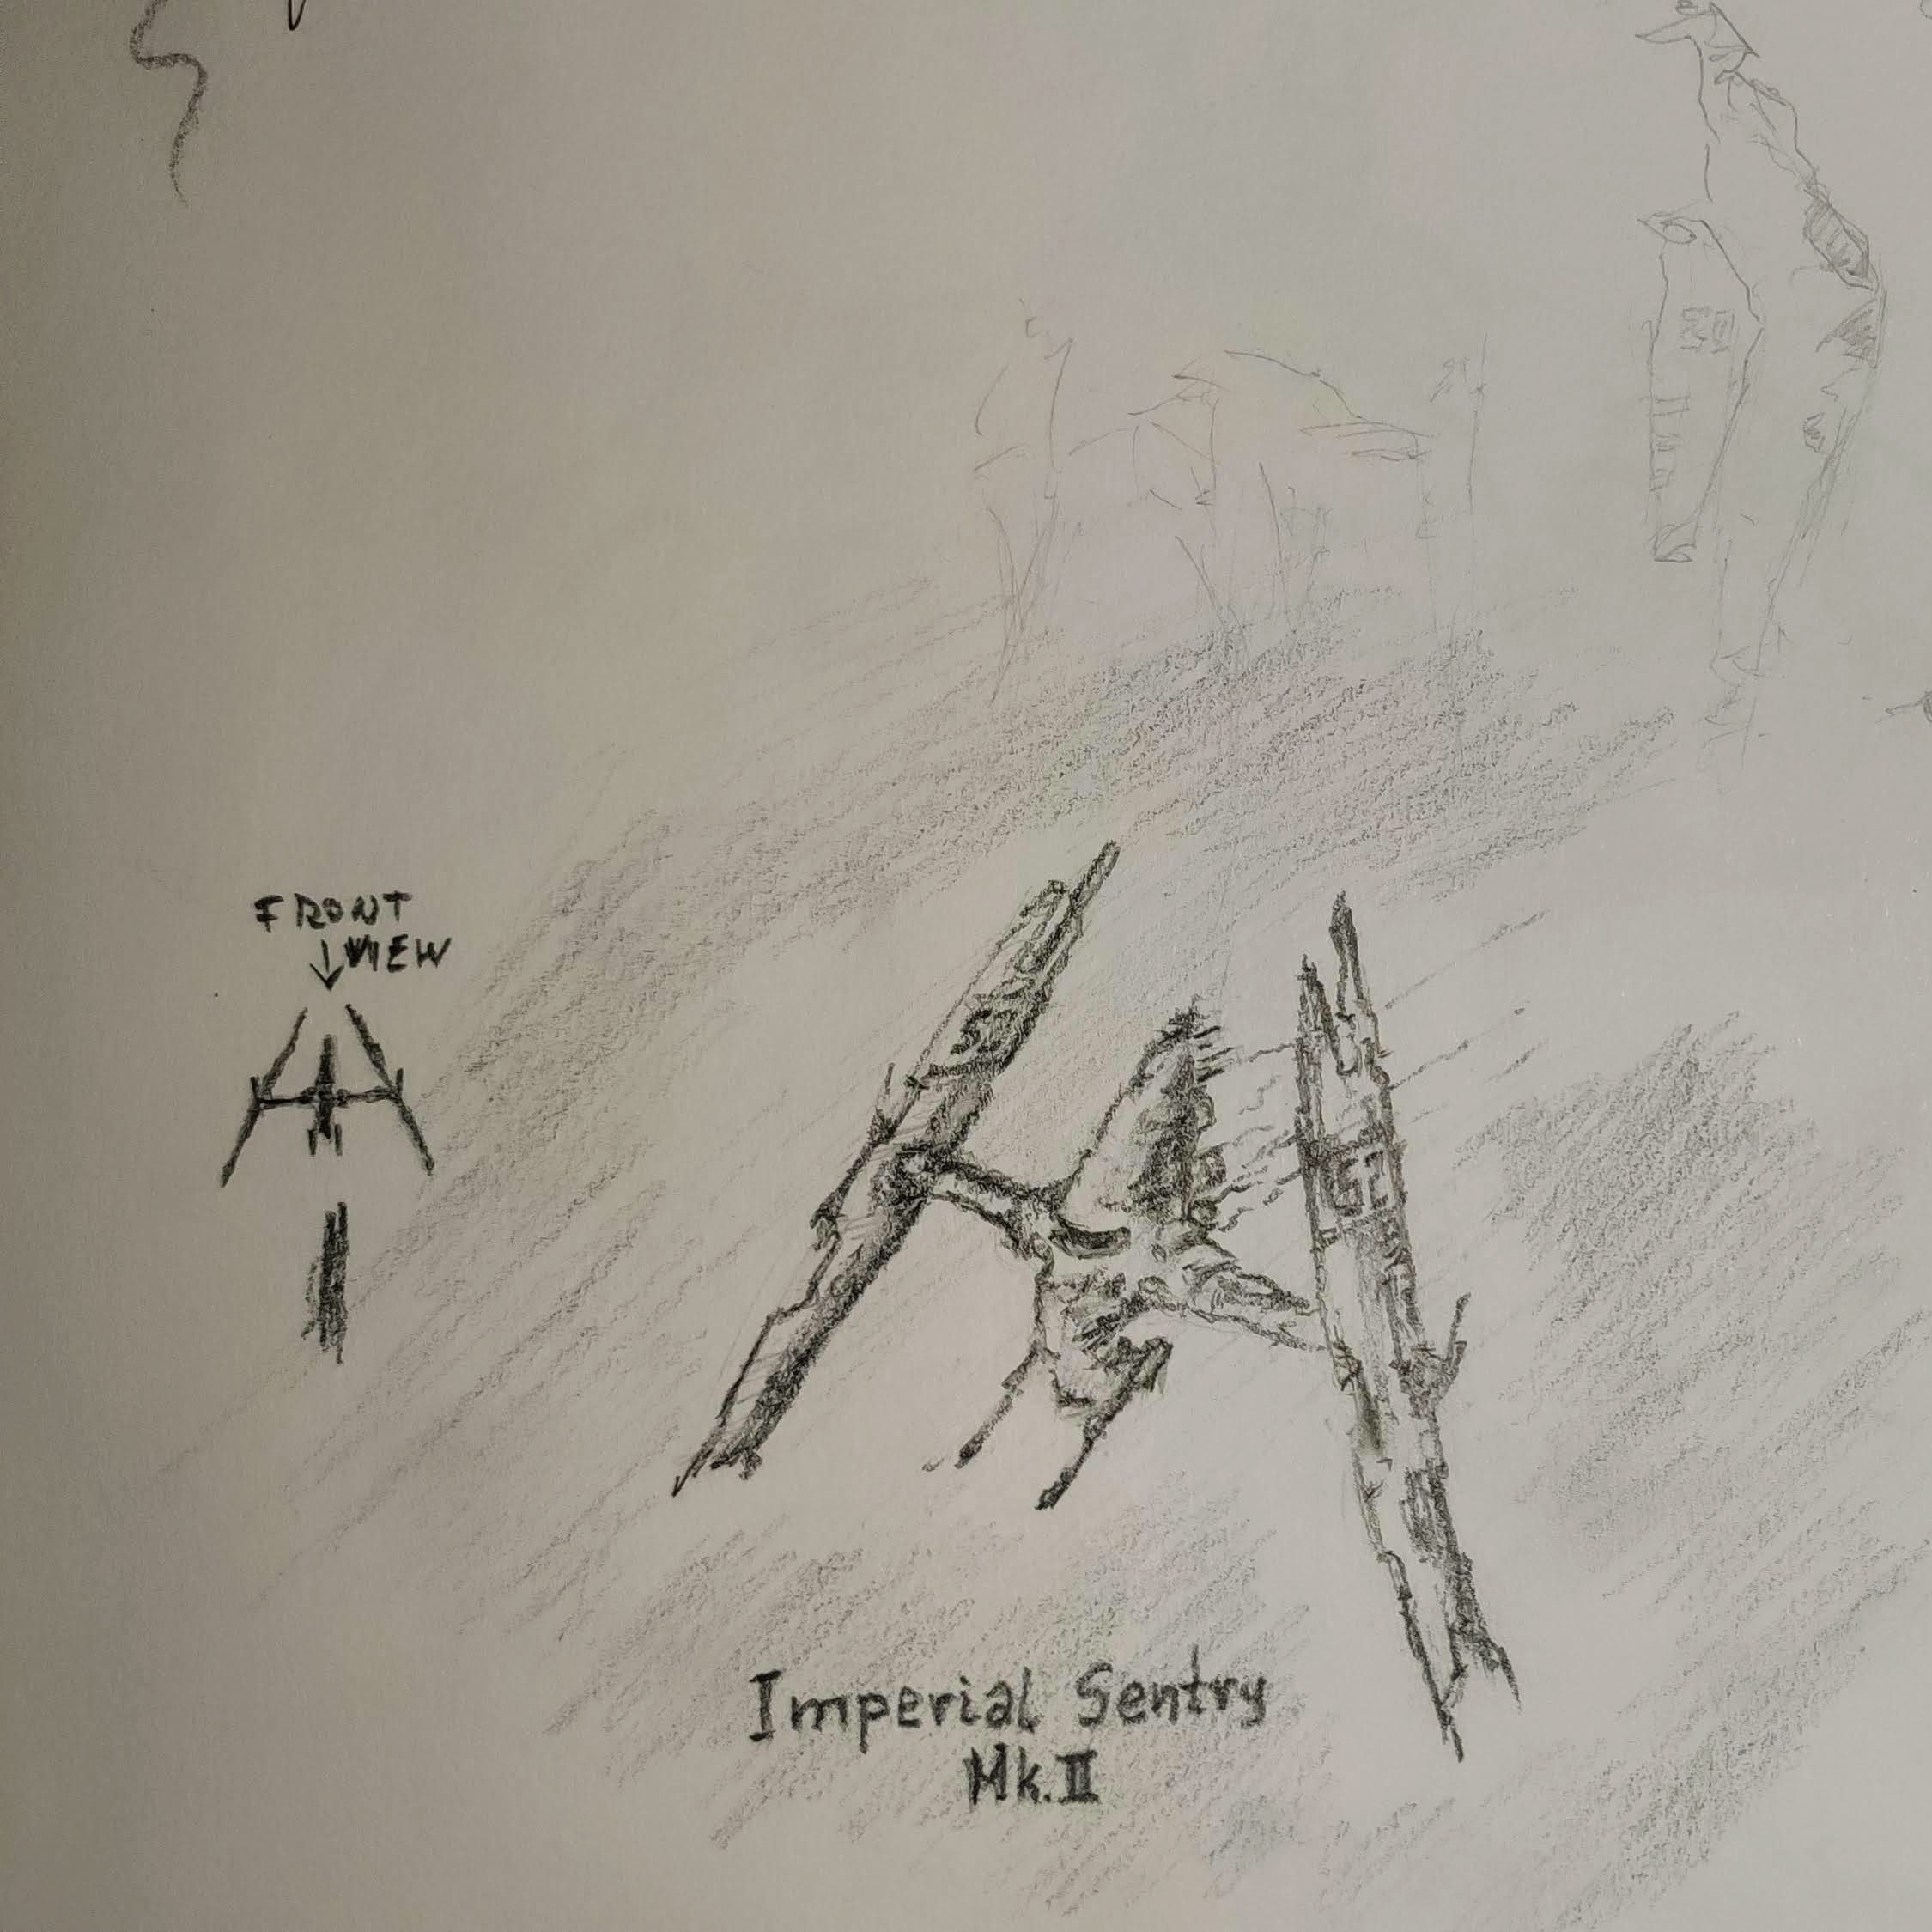 FRONT
VIEW
Imperial Sentry
Mk. II